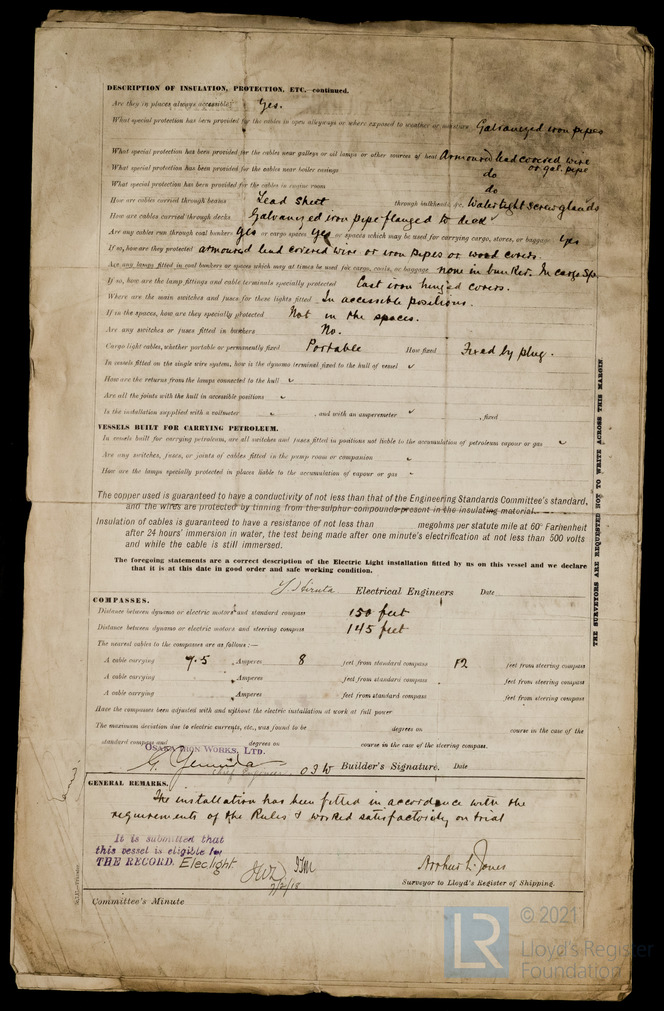 DESCRIPTION OF INSULATION, PROTECTION, ETC. continued.
Are they in places always accessible Yes.
What special protection has been provided for the cables in open alleyways or where exposed to weather or moisture Galvanized iron pipes
What special protection has been provided for the cables near galleys or oil lamps or other sources of heat Armoured lead covered wire
or gal. pipe
What special protection has been provided for the cables near boiler casings do
What special protection has been provided for the cables in engine room do
How are cables carried through beams Lead sheet through bulkheads, &c. Watertight screw glands
How are cables carried through decks Galvanized iron pipe flanged to deck
Are any cables run through coal bunkers Yes or cargo spaces Yes or spaces which may be used for carrying cargo, stores, or baggage Yes
If so, how are they protected armoured lead covered wire or iron pipes or wood covers.
Are any lamps fitted in coal bunkers or spaces which may at times be used for cargo, coals, or baggage none in bunker. In cargo Sp.
If so, how are the lamp fittings and cable terminals specially protected Cast iron hinged covers.
Where are the main switches and fuses for these lights fitted In accessible positions.
If in the spaces, how are they specially protected Not in the spaces.
Are any switches or fuses fitted in bunkers No.
Cargo light cables, whether portable or permanently fixed Portable How fixed Fixed by plug.
In vessels fitted on the single wire system, how is the dynamo terminal fixed to the hull of vessel ✓
How are the returns from the lamps connected to the hull ✓
Are all the joints with the hull in accessible positions ✓
Is the installation supplied with a voltmeter ✓ , and with an amperemeter ✓ , fixed
VESSELS BUILT FOR CARRYING PETROLEUM.
In vessels built for carrying petroleum, are all switches and fuses fitted in positions not liable to the accumulation of petroleum vapour or gas ✓
Are any switches, fuses, or joints of cables fitted in the pump room or companion ✓
How are the lamps specially protected in places liable to the accumulation of vapour or gas ✓
The copper used is guaranteed to have a conductivity of not less than that of the Engineering Standards Committee's standard,
and the wires are protected by tinning from the sulphur compounds present in the insulating material.
Insulation of cables is guaranteed to have a resistance of not less than megohms per statute mile at 60° Farhenheit
after 24 hours' immersion in water, the test being made after one minute's electrification at not less than 500 volts
and while the cable is still immersed.
The foregoing statements are a correct description of the Electric Light installation fitted by us on this vessel and we declare
that it is at this date in good order and safe working condition.
Electrical Engineers Date
COMPASSES.
Distance between dynamo or electric motors and standard compass 150 feet
Distance between dynamo or electric motors and steering compass 145 feet
The nearest cables to the compasses are as follows:—
A cable carrying 7.5 Amperes 8 feet from standard compass 12 feet from steering compass
A cable carrying Amperes feet from standard compass feet from steering compass
A cable carrying Amperes feet from standard compass feet from steering compass
Have the compasses been adjusted with and without the electric installation at work at full power
The maximum deviation due to electric currents, etc., was found to be degrees on course in the case of the
standard compass and degrees on course in the case of the steering compass.
OSAKA IRON WORKS, LTD.
Builder's Signature. Date
GENERAL REMARKS.
The installation has been fitted in accordance with the
requirements of the Rules & worked satisfactorily on trial
It is submitted that
this vessel is eligible for
THE RECORD. Elec light
Arthur L. Jones
Surveyor to Lloyd's Register of Shipping.
Committee's Minute
THE SURVEYORS ARE REQUESTED NOT TO WRITE ACROSS THIS MARGIN
LR
© 2021
Lloyd's Register
Foundation